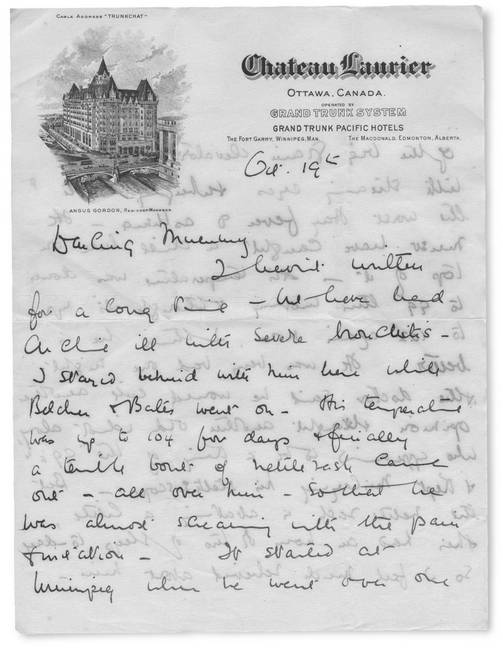 CABLE ADDRESS "TRUNKCHAT"
Chateau Laurier
OTTAWA, CANADA.
OPERATED BY
GRAND TRUNK SYSTEM
GRAND TRUNK PACIFIC HOTELS
THE FORT GARRY, WINNIPEG, MAN. THE MACDONALD, EDMONTON, ALBERTA.
ANGUS GORDON, RESIDENT MANAGER
Oct. 19th
Darling
I haven't written
for a long time – We have had
Archie ill with severe bronchitis –
I stayed behind with him here while
Belcher & Bates went on – His temperature
was up to 104 for days & finally
a terrible bout of nettlerash came
out – all over him – so that he
was almost screaming with the pain
& irritation – It started at
Winnipeg when he went over one